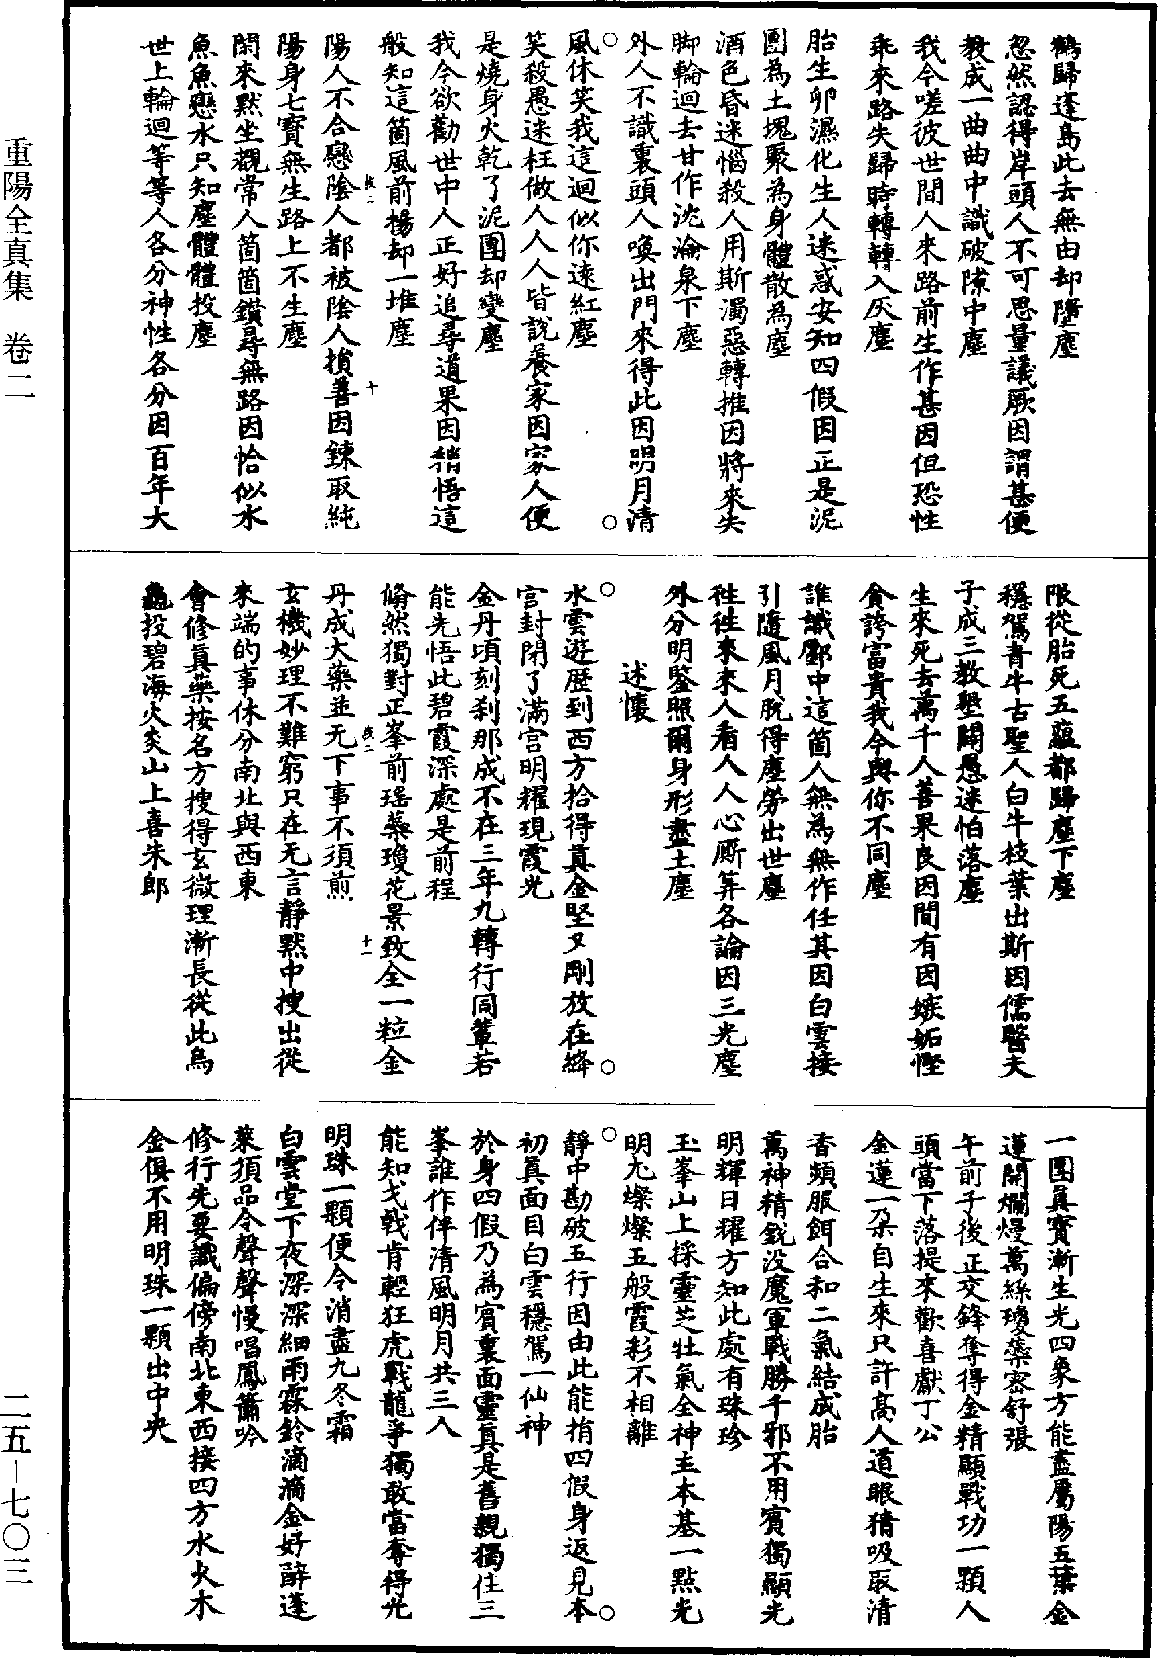 鶴歸蓬島此去無由却墮塵
忽然認得岸頭人不可思量議厥因謂甚便
教成一曲曲中識破隙中塵
我今嗟彼世間人來路前生作甚因但恐性
乖來路失歸時轉轉入灰塵
胎生卵濕化生人迷惑安知四假因正是泥
團為土塊聚為身體散為塵
酒色昏迷惱殺人用斯濁惡轉推因將來失
脚輪迴去甘作沈淪泉下塵
外人不識裏頭人喚出門來得此因明月清
風休笑我這迴似你遠紅塵
笑殺愚迷枉做人人人皆說養家因家人便
是燒身火乾了泥團却變塵
我今欲勸世中人正好追尋道果因稍悟這
般知這箇風前楊却一堆塵
陽人不合戀陰人都被陰人損善因鍊取純
陽身七寶無生路上不生塵
閑來默坐觀常人箇箇鑽尋無路因恰似水
魚魚戀水只知塵體體投塵
世上輪迴等等人各分神性各分因百年大
限從胎死五蘊都歸塵下塵
穩駕青牛古聖人白牛枝葉出斯因儒醫夫
子成三教墾闢愚迷怕落塵
生來死去萬千人善果良因間有因嫉妬慳
貪誇富貴我今與你不同塵
誰識酆中這箇人無為無作任其因白雲接
引隨風月脫得塵勞出世塵
往往來來人看人人心厮算各論因三光塵
外分明鑒照爾身形盡土塵
述懷
水雲遊歷到西方拾得真金堅又剛放在絳
宮封閉了滿宮明耀現霞光
金丹頃刻剎那成不在三年九轉行同輩若
能先悟此碧霞深處是前程
翛然獨對正峯前瑤蘂瓊花景致全一粒金
丹成大藥並无下事不須煎
玄機妙理不難窮只在无言靜默中搜出從
來端的事休分南北與西東
會修真藥按名方搜得玄微理漸長從此烏
龜投碧海火炎山上喜朱郎
一團真寶漸生光四象方能盡屬陽五葉金
蓮開爛熳萬絲瓊蘂密舒張
午前子後正交鋒奪得金精顯戰功一顆人
頭當下落提來歡喜獻丁公
金蓮一朵自生來只許高人道眼猜吸取清
香頻服餌合和二氣結成胎
萬神精銳没魔軍戰勝千邪不用賓獨顯光
明輝日耀方知此處有珠珍
玉峯山上採靈芝壯氣全神主本基一點光
明九燦燦五般霞彩不相離
靜中勘破五行因由此能捎四假身返見本
初真面目白雲穩駕一仙神
於身四假乃為賓裏面靈真是舊親獨住三
峯誰作伴清風明月共三人
能知戈戟肯輕狂虎戰龍爭獨敢當奪得光
明珠一顆便令消盡九冬霜
白雲堂下夜深深細雨霖鈴滴滴金好醉蓬
萊須品令聲聲慢唱鳳簫吟
修行先要識偏傍南北東西接四方水火木
金俱不用明珠一顆出中央
重陽全真集 卷二
二五－七〇三